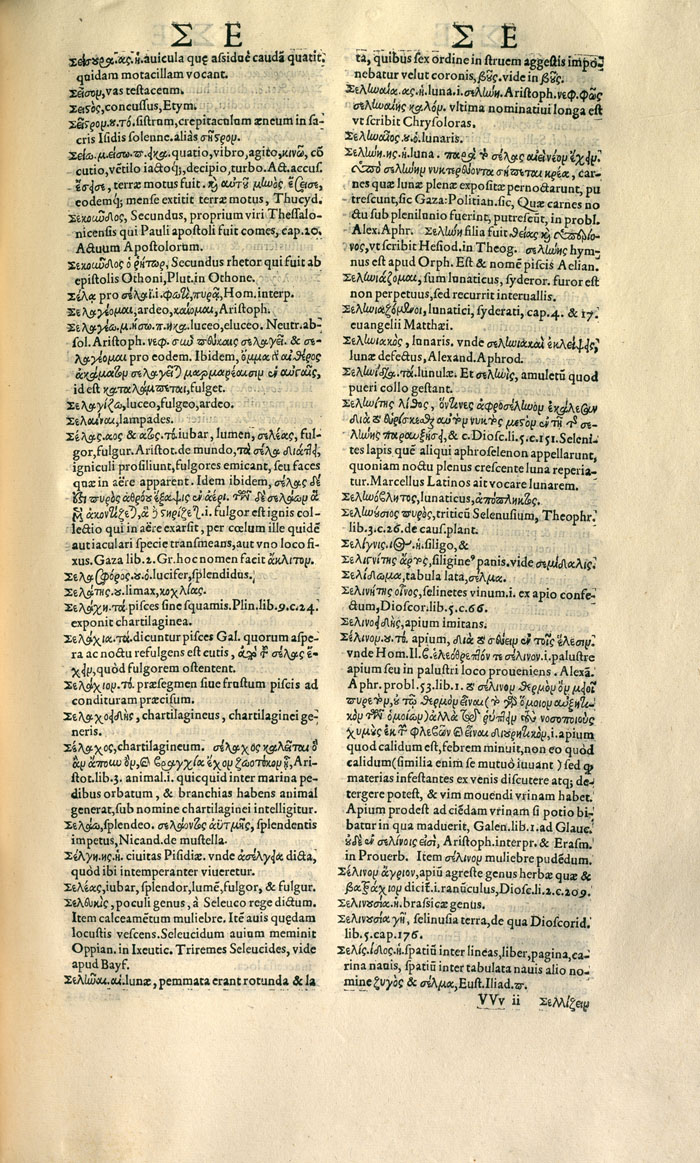 Σ Ε
Σεισουρα.ας.ἡ.auicula quę assiduè caudã quatit,
quidam motacillam vocant.
Σεῖσομ, vas testaceum.
Σειτὸς, concussus, Etym.
sistrum, crepitaculum æneum in sa-
cris Isidis solenne. aliàs
Σείω. quatio, vibro, agito, κινῶ, cõ
cutio, vẽtilo iactoq́;, decipio, turbo. Act. accus.
terræ motus fuit.
eodemq́; mense extitit terræ motus, Thucyd.
Σεκοῦνδος, Secundus, proprium viri Thessalo-
nicensis qui Pauli apostoli fuit comes, cap.20.
Actuum Apostolorum.
Σεκοῦνδος ὁ ῥήτωρ, Secundus rhetor qui fuit ab
epistolis Othoni, Plut. in Othone.
Σέλα pro σέλαϊ.i. φωτὶ, πυρᾷ, Hom. interp.
Σελαγέομαι, ardeo, καίομαι, Aristoph.
Σελαγέω. luceo, eluceo. Neutr. ab-
sol. Aristoph. νεφ. & σε-
λαγέομαι pro eodem. Ibidem, ὄμμα αἰθέρος
ἀκάματον σελαγεῖται μαρμαρέαισιν ἐν αὐγαῖς,
id est καταλάμπεται, fulget.
Σελαγίζω, luceo, fulgeo, ardeo.
Σελαῖναι, lampades.
Σέλας.αος & iubar, lumen, σελέας, ful-
gor, fulgur. Aristot. de mundo, τὰ σέλα
igniculi prosiliunt, fulgores emicant, seu faces
quæ in aëre apparent. Idem ibidem, σέλας δέ
ἐστι πυρὸς ἀθρόου ἔξαψις ἐν ἀέρι. τῶν δὲ σελάων ἃ
μὲν ἀκοντίζεται, ἃ δὲ στηρίζεται. i. fulgor est ignis col-
lectio qui in aëre exarsit, per cœlum ille quidẽ
aut iaculari specie transmeans, aut vno loco fi-
xus. Gaza lib.2. Gr. hoc nomen facit ἄκλιτομ.
Σελασφόρος.ου.ὁ. lucifer, splendidus.
Σελάτης.ου. limax, κοχλίας.
Σελάχη.τὰ pisces sine squamis. Plin.lib.9.c.24.
exponit chartilaginea.
Σελάχια.τὰ. dicuntur pisces Gal. quorum aspe-
ra ac noctu refulgens est cutis, ἀπὸ τοῦ σέλας ἔ-
χειμ, quòd fulgorem ostentent.
Σελάχιομ.τό. præsegmen siue frustum piscis ad
condituram præcisum.
Σελαχοειδὴς, chartilagineus, chartilaginei ge-
neris.
Σελαχος, chartilagineum. σέλαχος καλεῖται ὃ
ἂν ἄπουν ὂν, βράγχια ἔχον ζωοτόκον ᾖ, Ari-
stot.lib.3. animal. i. quicquid inter marina pe-
dibus orbatum, & branchias habens animal
generat, sub nomine chartilaginei intelligitur.
Σελάω, splendeo. σελάοντος ἀϋτμῆς, splendentis
impetus, Nicand. de mustella.
Σέλγη.ης.ἡ. ciuitas Pisidiæ. vnde ἀσέλγεια dicta,
quòd ibi intemperanter viueretur.
Σελέας, iubar, splendor, lumẽ, fulgor, & fulgur.
poculi genus, à Seleuco rege dictum.
Item calceamẽtum muliebre. Itẽ auis quędam
locustis vescens. Seleucidum auium meminit
Oppian. in Ixeutic. Triremes Seleucides, vide
apud Bayf.
Σελῆναι.αἱ. lunæ, pemmata erant rotunda & la
Σ Ε
ta, quibus sex ordine in struem aggestis impo-
nebatur velut coronis, βοῦς. vide in βοῦς.
Σεληναία.ας.ἡ. luna. i. σελήνη. Aristoph. νεφ. φῶς
σεληναίης καλόμ. vltima nominatiui longa est
vt scribit Chrysoloras.
Σεληναῖος.ου.ὁ. lunaris.
Σελήνη.ης.ἡ. luna. παρὰ τὸ σέλας ἀεὶ νέομ ἔχειμ.
car-
nes quæ lunæ plenæ expositæ pernoctarunt, pu
trescunt, sic Gaza: Politian. sic, Quæ carnes no
ctu sub plenilunio fuerint, putrescũt, in probl.
Alex. Aphr. Σελήνη filia fuit θείας καὶ ὑπερίο-
νος, vt scribit Hesiod. in Theog. σελήνης hym-
nus est apud Orph. Est & nomẽ piscis Aelian.
Σεληνιάζομαι, sum lunaticus, syderor. furor est
non perpetuus, sed recurrit interuallis.
Σεληνιαζόμενοι, lunatici, syderati, cap.4. & 17.
euangelii Matthæi.
Σεληνιακὸς, lunaris. vnde σεληνιακαὶ ἐκλείψεις,
lunæ defectus, Alexand. Aphrod.
τὰ. lunulæ. Et amuletũ quod
pueri collo gestant.
Σεληνίτης λίθος, ὅντινες ἀφροσέληνομ ἐκάλεσαν
διὰ τὸ εὑρίσκεσθαι αὐτὸμ νυκτὸς μεστὸμ ἐν τῇ τῆς σε-
λήνης παραυξήσει, & c. Diosc.li.5.c.151. Seleni-
tes lapis quẽ aliqui aphroselenon appellarunt,
quoniam noctu plenus crescente luna reperia-
tur. Marcellus Latinos ait vocare lunarem.
Σεληνόβλητος, lunaticus, ἀπόπληκτος.
Σεληνούσιος πυρὸς, triticũ Selenusium, Theophr.
lib.3.c.26. de caus. plant.
Σελιγνις.ιος.ἡ. siligo, &
Σελιγνίτης ἄρτος, siligine⁹ panis. vide σεμίδαλις.
Σελιδωμα, tabula lata, σέλμα.
Σελινίτης οἶνος, selinetes vinum. i. ex apio confe-
ctum, Dioscor.lib.5.c.66.
Σελινοειδὴς, apium imitans.
Σέλινομ.ου.τό. apium, διὰ
vnde Hom. Il. β. ἐλεόθρεπτόν τε σέλινον. i. palustre
apium seu in palustri loco proueniens. Alexã.
Aphr. probl.53.lib.1.
i. apium
quod calidum est, febrem minuit, non eo quòd
calidum (similia enim se mutuò iuuant) sed ꝙ
materias infestantes ex venis discutere atq; de-
tergere potest, & vim mouendi vrinam habet.
Apium prodest ad ciẽdam vrinam si potio bi-
batur in qua maduerit, Galen.lib.1. ad Glauc.
οὐδ' ἐν σελίνοις εἰσὶ, Aristoph. interpr. & Erasm.
in Prouerb. Item σέλινομ muliebre pudẽdum.
Σέλινομ ἄγριον, apiũ agreste genus herbæ quæ &
βατράχιομ dicit.i.ranũculus, Diosc.li.2.c.209.
Σελινουσία.ἡ. brassicæ genus.
Σελινουσία γῆ, selinusia terra, de qua Dioscorid.
lib.5.cap.176.
Σελὶς.ίδος.ἡ. spatiũ inter lineas, liber, pagina, ca-
rina nauis, spatiũ inter tabulata nauis alio no-
mine ζυγὸς & σέλμα, Eust. Iliad. π.
VVv ii Σελλίζειμ